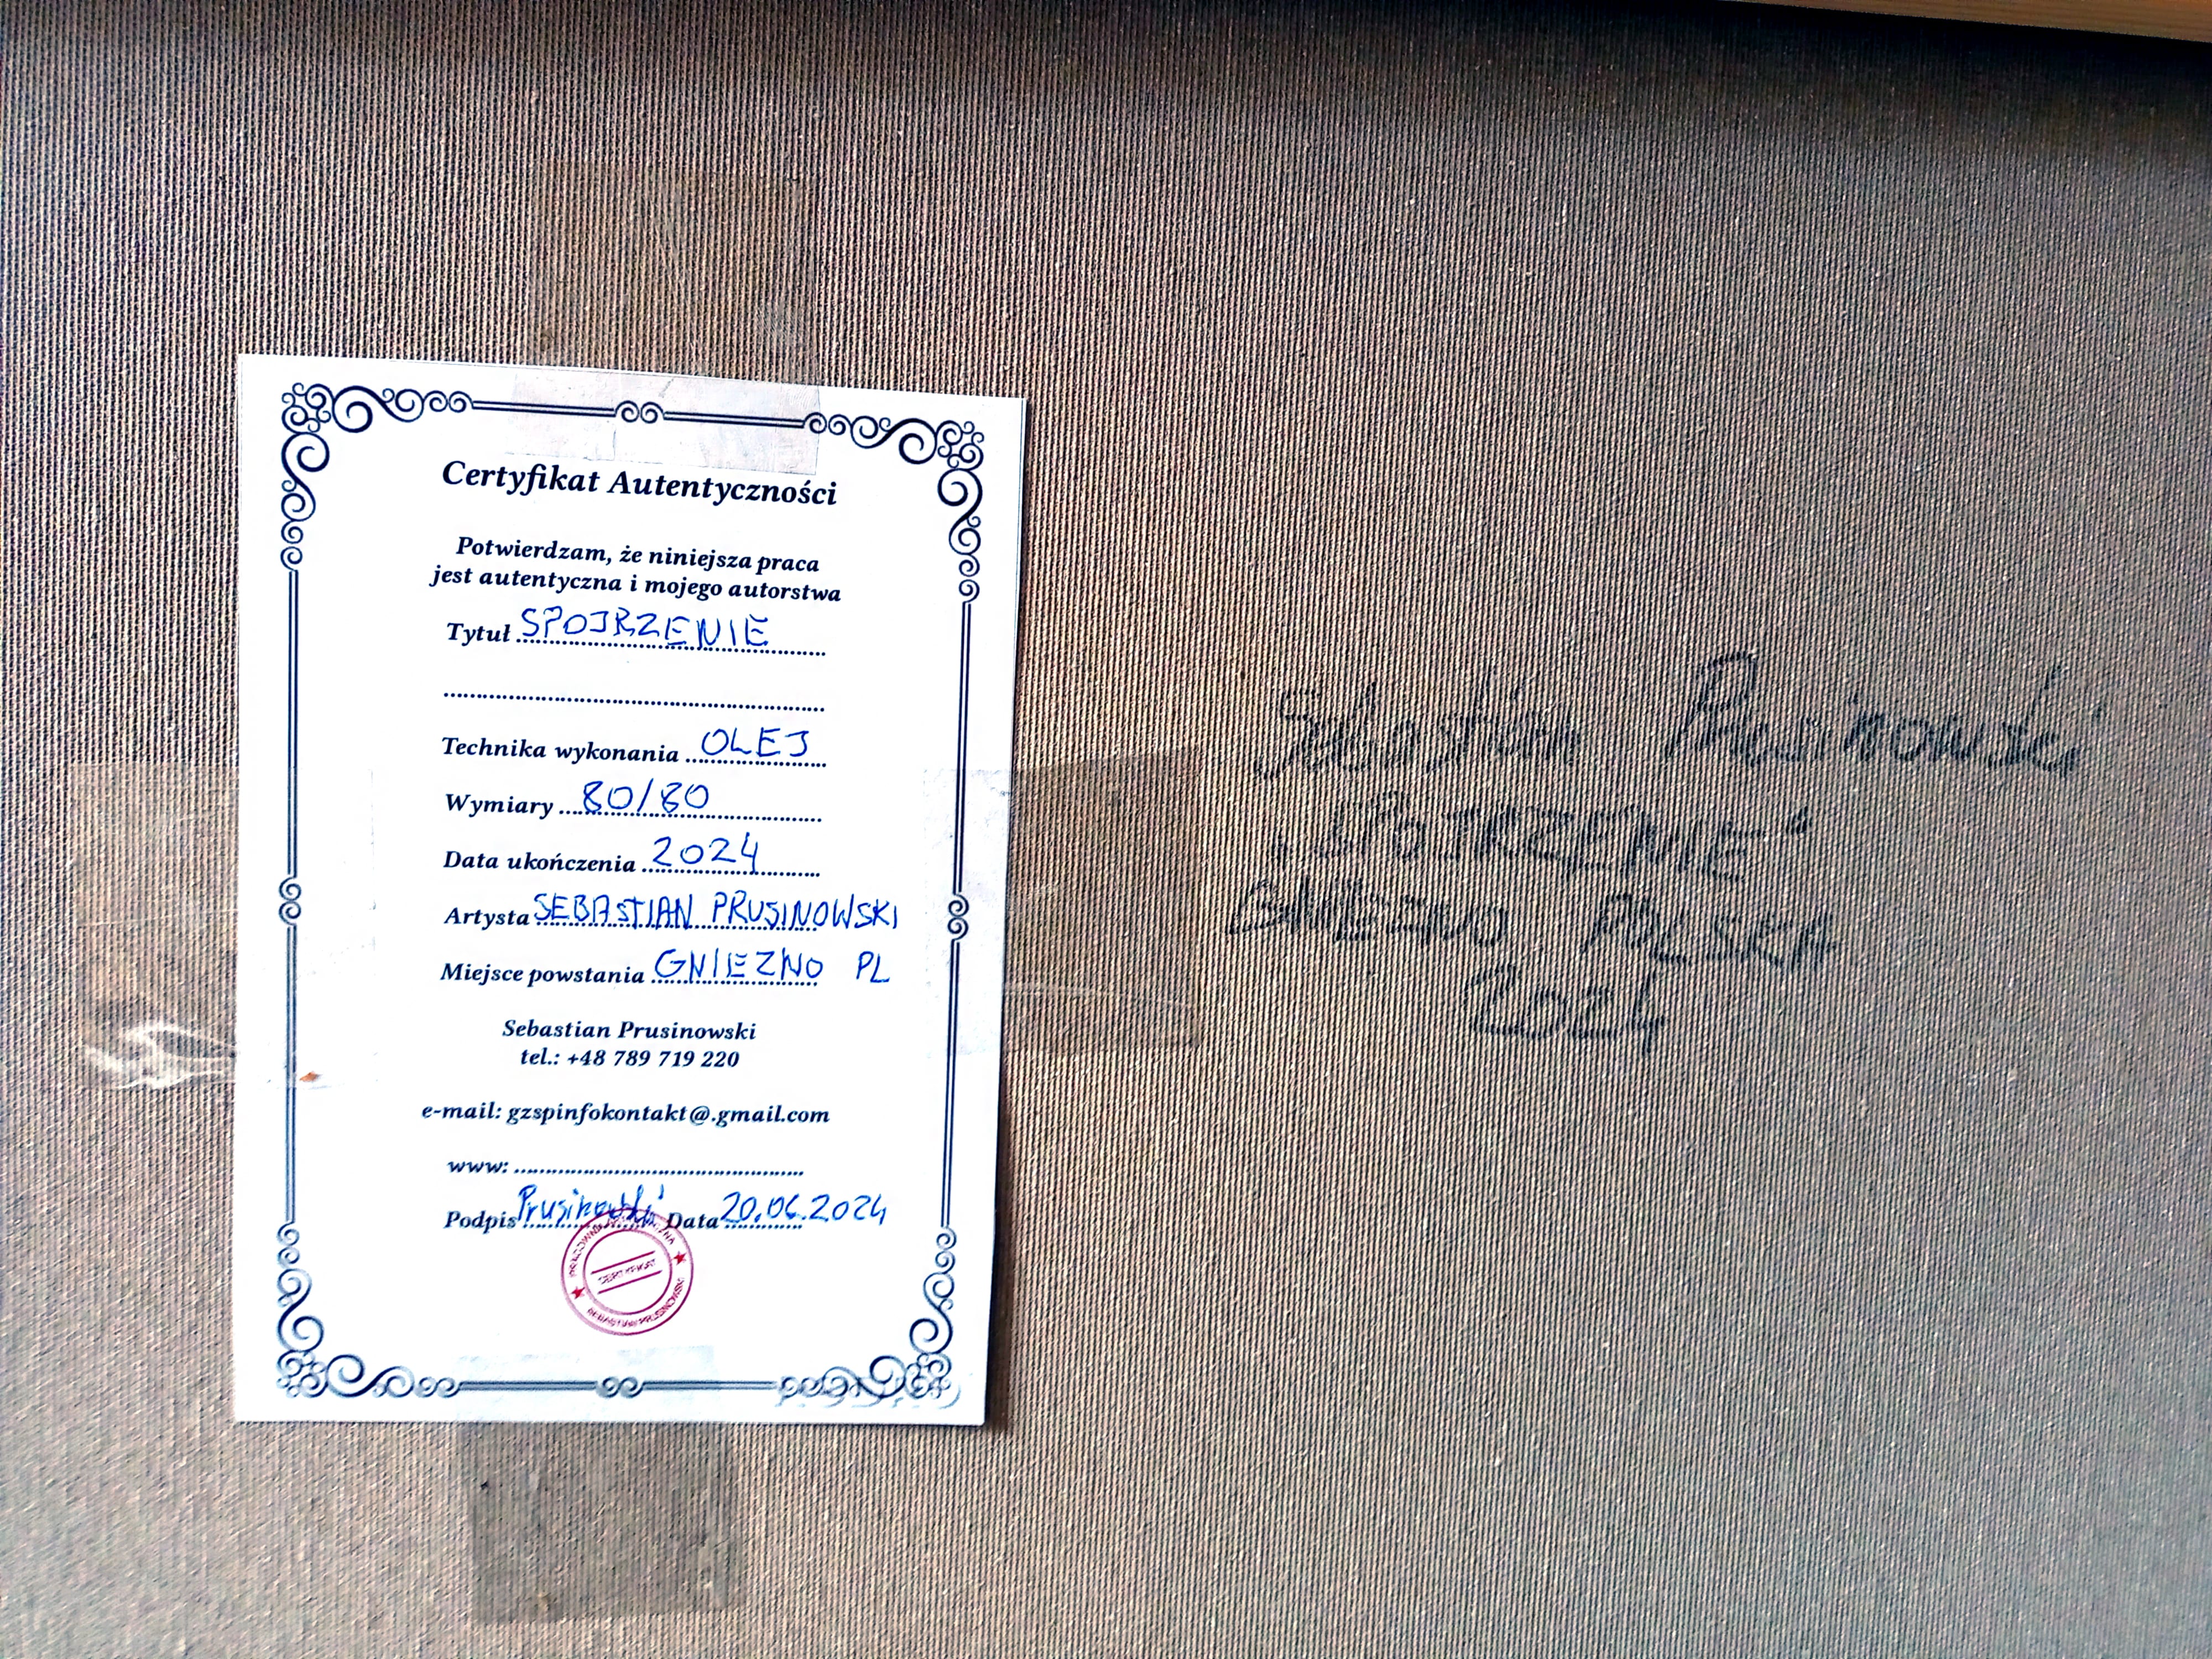 Certyfikat Autentyczności
Potwierdzam, że niniejsza praca
jest autentyczna i mojego autorstwa
Tytuł SPOJRZENIE
Technika wykonania OLEJ
Wymiary 80/80
Data ukończenia 2024
Artysta SEBASTIAN PRUSINOWSKI
Miejsce powstania GNIEZNO PL
Sebastian Prusinowski
tel.: +48 789 719 220
e-mail: gzspinfokontakt@.gmail.com
www:
Podpis Prusinowski Data 20.06.2024
CERTYFIKAT
SEBASTIAN PRUSINOWSKI
Sebastian Prusinowski
„SPOJRZENIE"
GNIEZNO POLSKA
2024